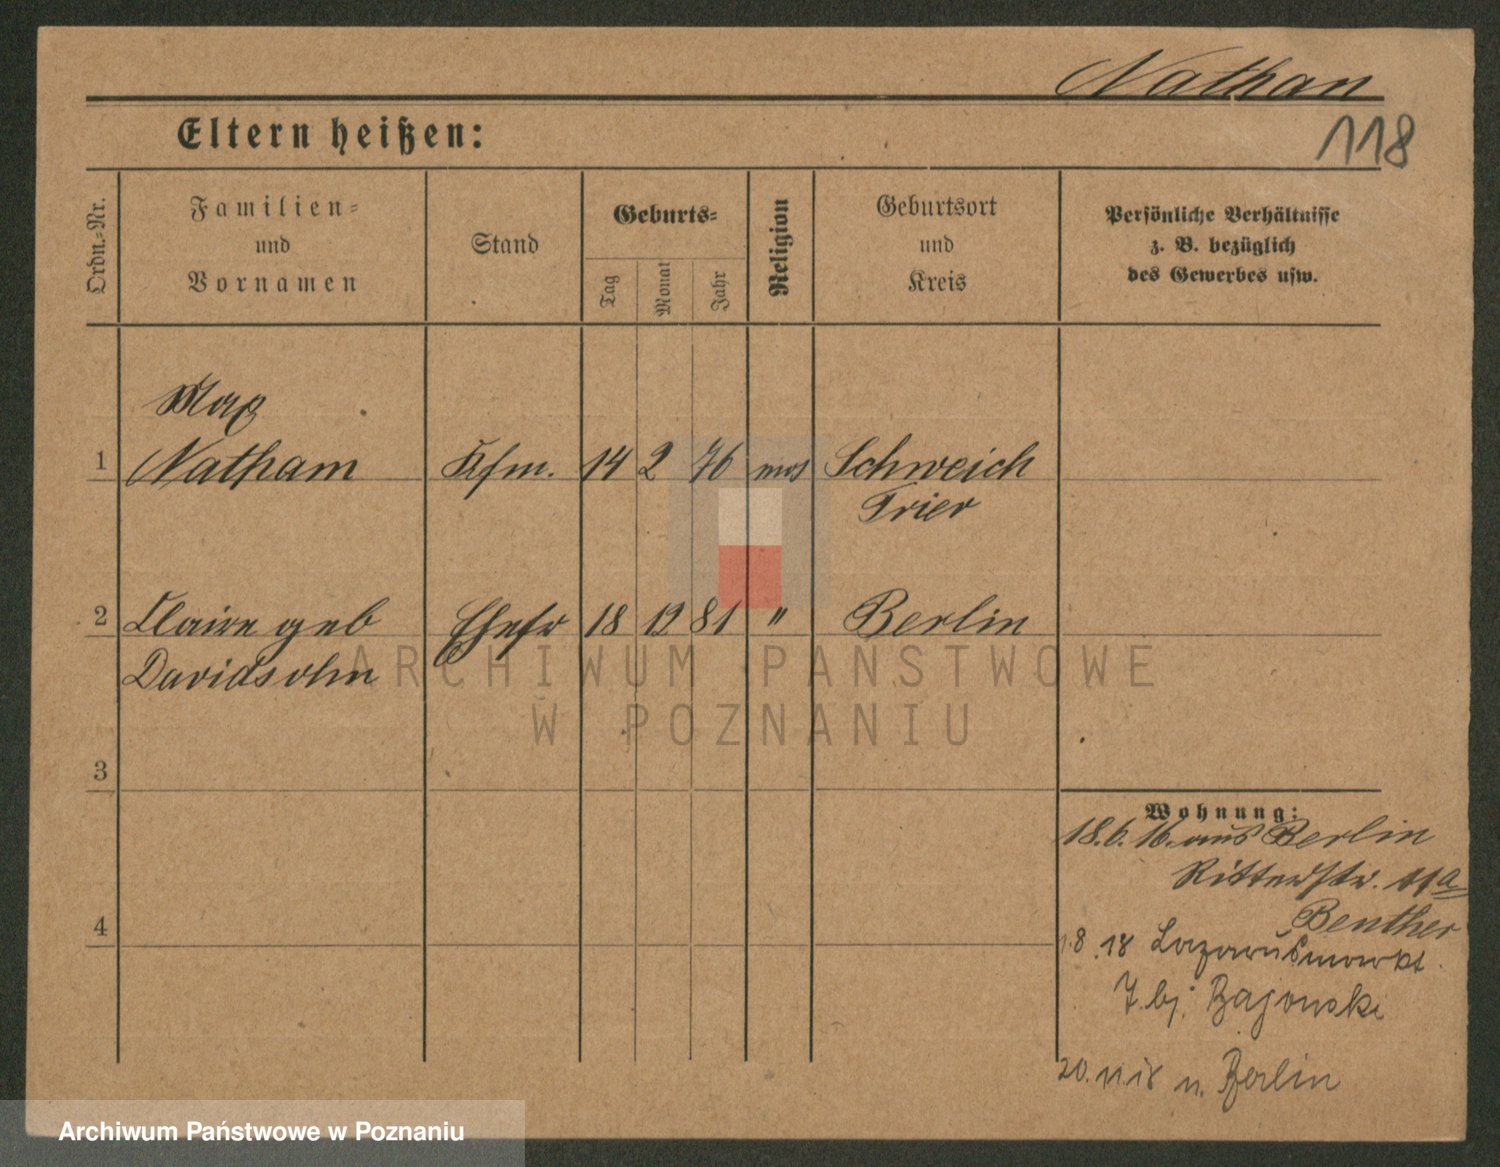 Nathan
118
Eltern heißen:
Ordn.-Nr.
Familien-
und
Vornamen
Stand
Geburts-
Tag
Monat
Jahr
Religion
Geburtsort
und
Kreis
Persönliche Verhältnisse
z. B. bezüglich
des Gewerbes usw.
Max
1 Nathan Kfm. 14 2 76 mos Schweich
Trier
2 Claire geb Ehefr 18 12 81 " Berlin
Davidsohn
ARCHIWUM PAŃSTWOWE
W POZNANIU
3
Wohnung:
18.6.16. aus Berlin
Ritterstr. 11a
Benther
4
1.8.18 Lazarusmarkt
7. bj.
20.11.18 n. Berlin
Archiwum Państwowe w Poznaniu